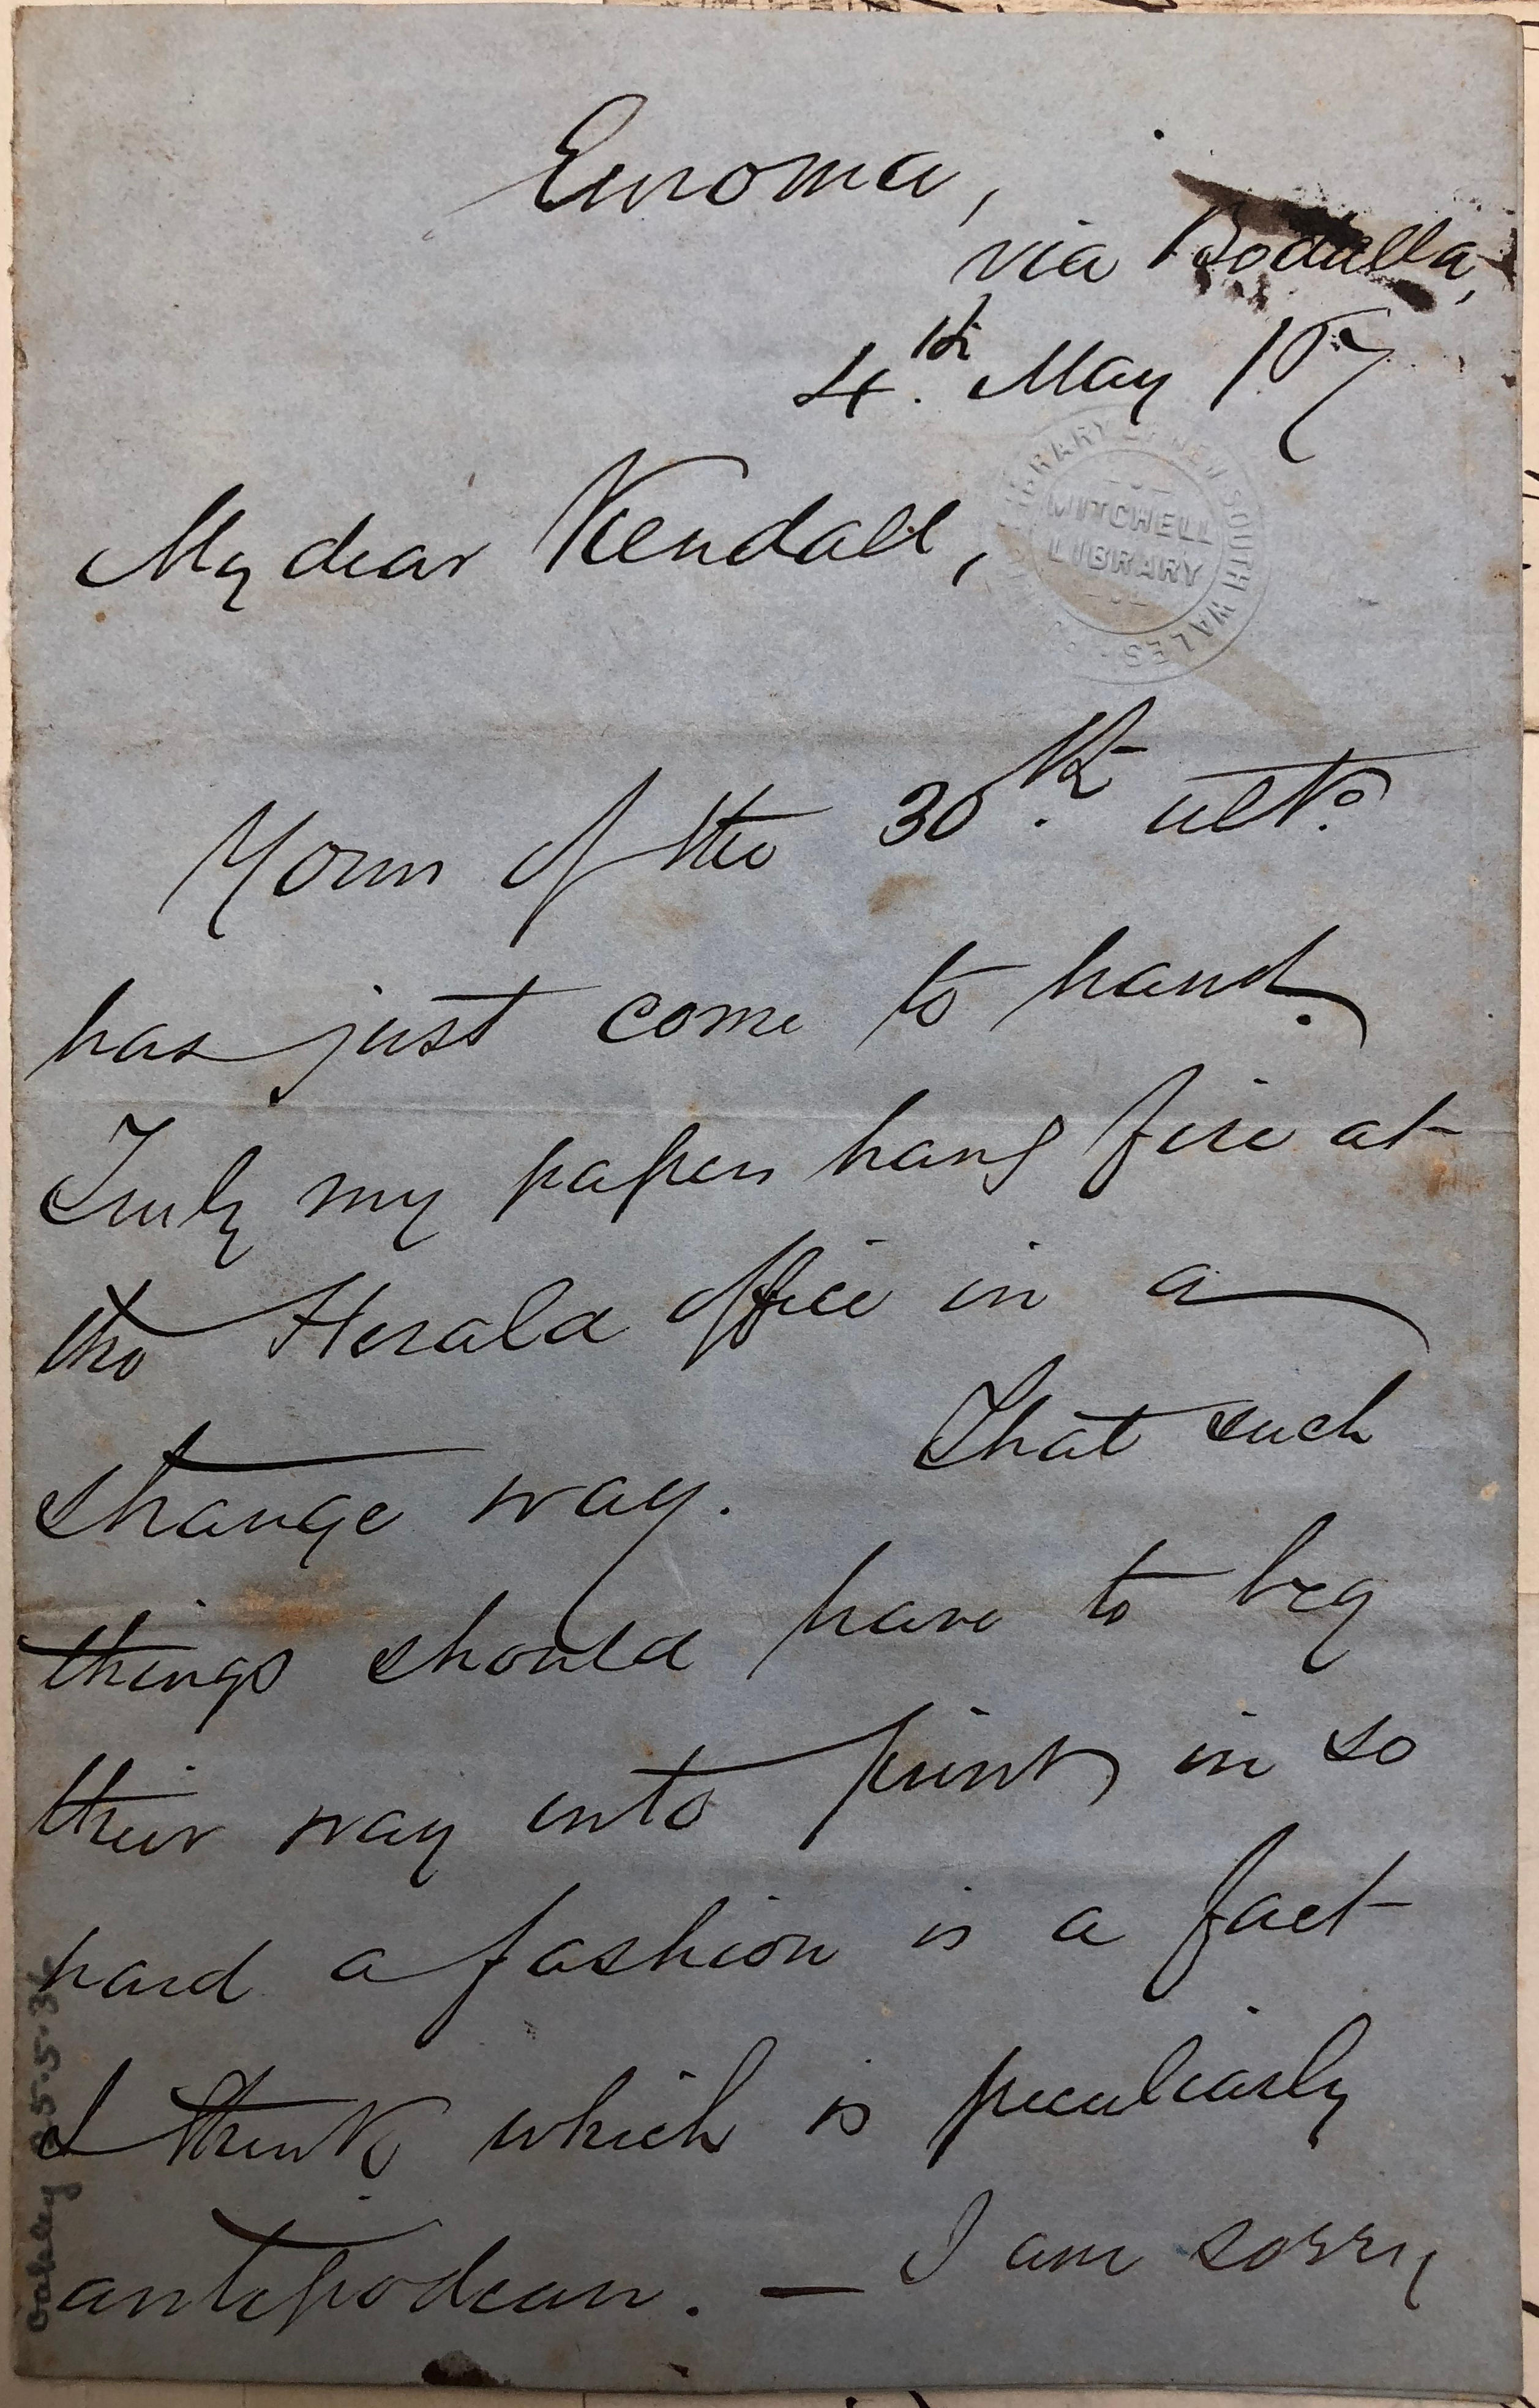 Euroma,
via Bodalla,
4th. May 187
My dear Kendall,
Yours of the 30th. ulto.
has just come to hand.
Truly my papers hang fire at
the Herald office in a
strange way. That such
things should have to beg
their way into print in so
hard a fashion is a fact
I think which is peculiarly
antipodean. — I am sorry
LIBRARY OF NEW SOUTH WALES
MITCHELL
LIBRARY
Oakley 25.5.34